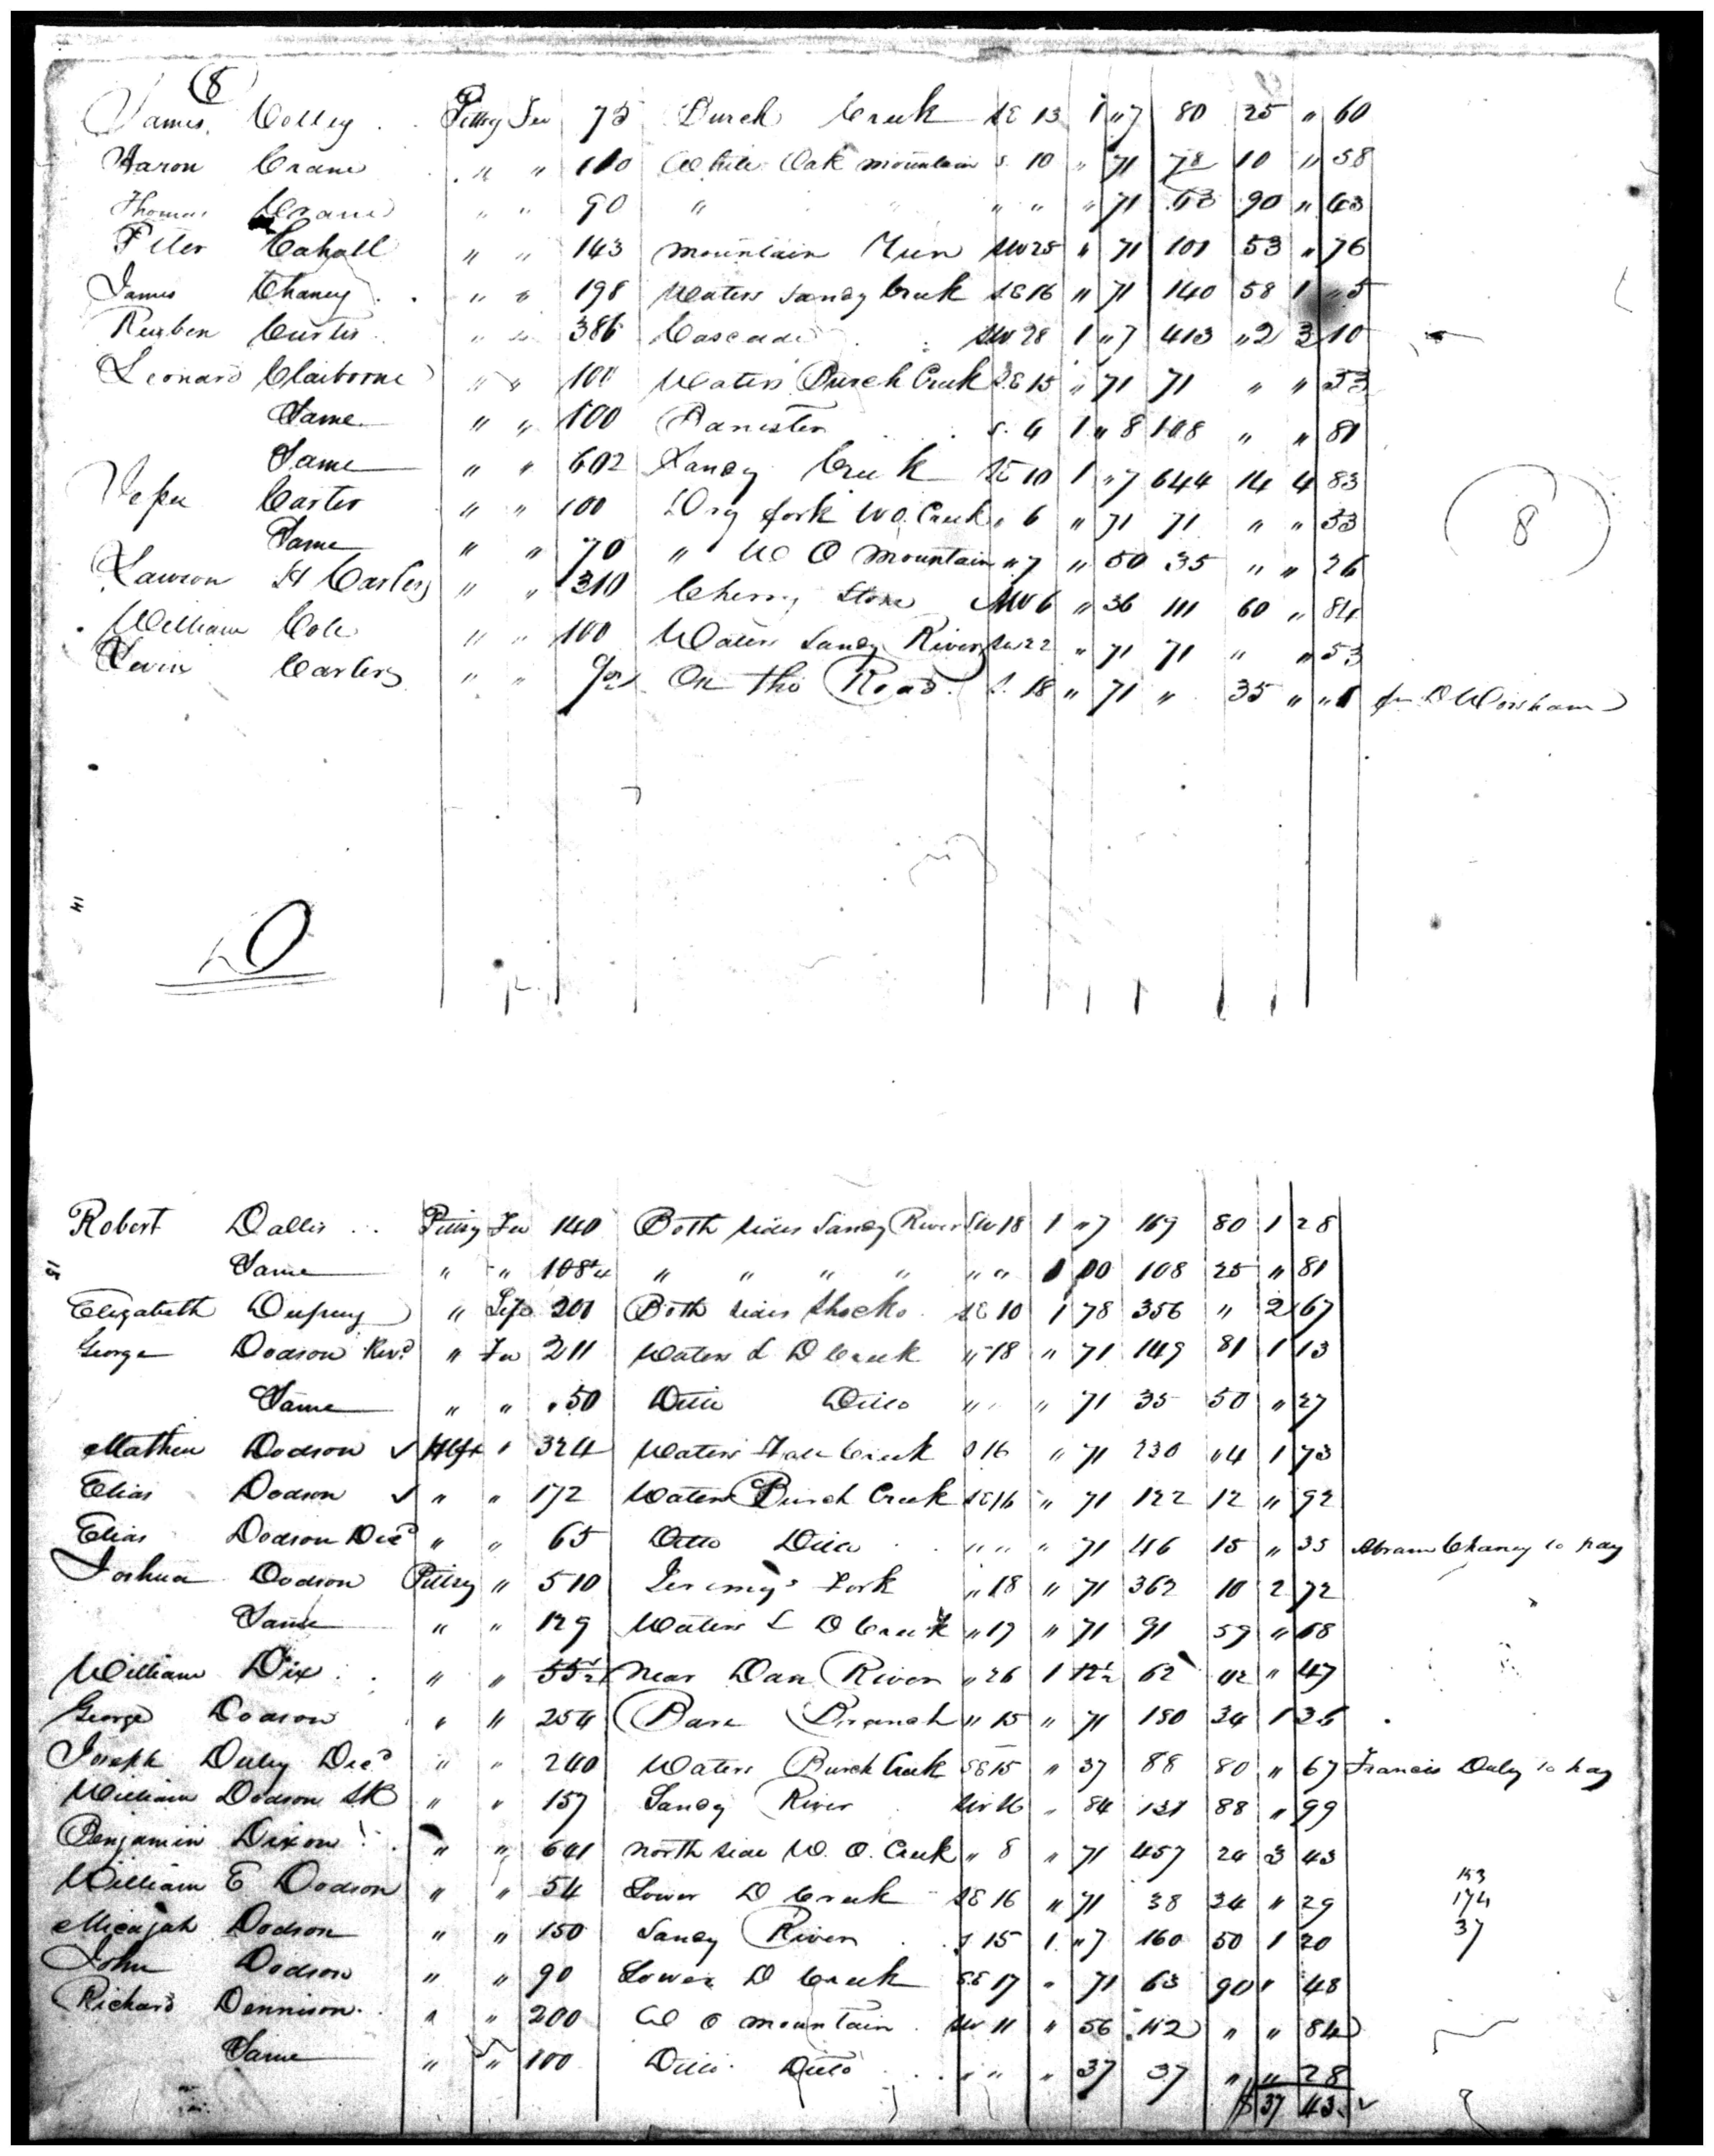 8
James Colley Pittsy Fee 75 Burch Creek SE 13 1 " 7 80 25 " 60
Aaron Crane " " 110 White Oak mountain S. 10 " 71 78 10 " 58
Thomas Crane " " 90 " " " " " 71 63 90 " 43
Peter Cahall " " 143 mountain Run SW 25 " 71 101 53 " 76
James Chaney " " 198 Waters Sandy Creek SE 16 " 71 140 58 1 " 5
Reuben Curtis " " 386 Cascade SW 28 1 " 7 413 " 2 3 10
Leonard Claiborne " " 100 Waters Burch Creek SE 15 " 71 71 " " 53
Same " " 100 Banister S. 4 1 " 8 108 " " 81
Same " " 602 Sandy Creek SE 10 1 " 7 644 14 4 83
Carter " " 100 Dry fork W O. Creek " 6 " 71 71 " " 53
8
Same " " 70 " W O Mountain " 7 " 50 35 " " 26
Lawson H Carter " " 310 Cherry Stone NW 6 " 36 111 60 " 84
William Cole " " 100 Waters Sandy River SW 22 " 71 71 " " 53
Levin Carter " " On the Road S. 18 " 71 " 35 " " 1 for D Worsham
14
D
Robert Dallis Pittsy Fee 140 Both sides Sandy River SW 18 1 " 7 169 80 1 28
15
Same " " 108¼ " " " " " " 1 00 108 25 " 81
Elizabeth Dupuy " Life 201 Both sides Shocko SE 10 1 78 356 " 2 67
George Dodson Revd " Fee 211 Waters L D Creek " 18 " 71 149 81 1 13
Same " " 50 Ditto Ditto " " " 71 35 50 " 27
Mathew Dodson ✓ Hlfx " 324 Waters Fall Creek S 16 " 71 230 " 4 1 73
Elias Dodson ✓ " " 172 Waters Burch Creek SE 16 " 71 122 12 " 92
Elias Dodson Decd " " 65 Ditto Ditto " " " 71 46 15 " 35 Abram Chaney to pay
Joshua Dodson Pittsy " 510 Jeremy's Fork " 18 " 71 362 10 2 72
Same " " 129 Waters L D Creek " 17 " 71 91 59 " 68
William Dix " " 55½ Near Dan River " 26 1 12½ 62 42 " 47
George Dodson " " 254 Bare Branch " 15 " 71 180 34 1 36
Joseph Duley Decd " " 240 Waters Burch Creek SE 15 " 37 88 80 " 67 Francis Duley to pay
William Dodson SR " " 157 Sandy River SW 16 " 84 131 88 " 99
Benjamin Dixon " " 641 North side W. O. Creek " 8 " 71 457 24 3 43
William E Dodson " " 54 Lower D Creek SE 16 " 71 38 34 " 29
153
174
37
Micajah Dodson " " 150 Sandy River S 15 1 " 7 160 50 1 20
John Dodson " " 90 Lower D Creek SE 17 " 71 63 90 " 48
Richard Dennison " " 200 W O mountain SW 11 " 56 112 " " 84
Same " " 100 Ditto Ditto " " " 37 37 " " 28
$ 37 43 ✓